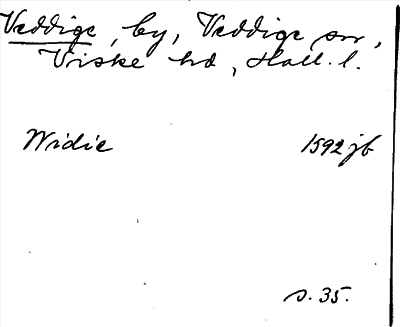 Veddige, by, Veddige sn,
Viske hd, Hall. l.
Widie 1592 jb
s. 35.